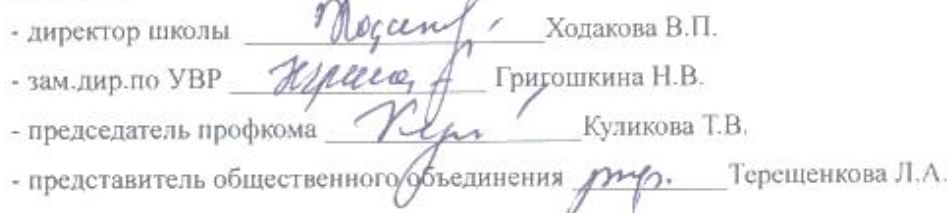 - директор школы Ходакова В.П.
- зам.дир.по УВР Григошкина Н.В.
- председатель профкома Куликова Т.В.
- представитель общественного объединения Терещенкова Л.А.